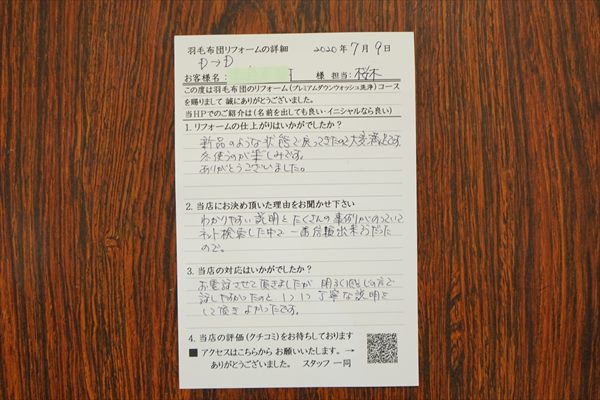 羽毛布団リフォームの詳細 2020年7月9日
D→D
お客様名: 様 担当:桜木
この度は羽毛布団のリフォーム(プレミアムダウンウォッシュ洗浄)コース
を賜りまして 誠にありがとうございました。
当HPでのご紹介は(名前を出しても良い・イニシャルなら良い)
1. リフォームの仕上がりはいかがでしたか?
新品のような状態で戻ってきたので大変満足です。
冬使うのが楽しみです。
ありがとうございました。
2. 当店にお決め頂いた理由をお聞かせ下さい
わかりやすい説明とたくさんの事例がのっていて
ネット検索した中で一番信頼出来そうだった
ので。
3. 当店の対応はいかがでしたか?
お電話させて頂きましたが 明るく感じの方で
話しやすかったのと 1つ1つ丁寧な説明を
して頂き よかったです。
4. 当店の評価(クチコミ)をお待ちしております
■ アクセスはこちらから お願いいたします。→
ありがとうございました。 スタッフ 一同